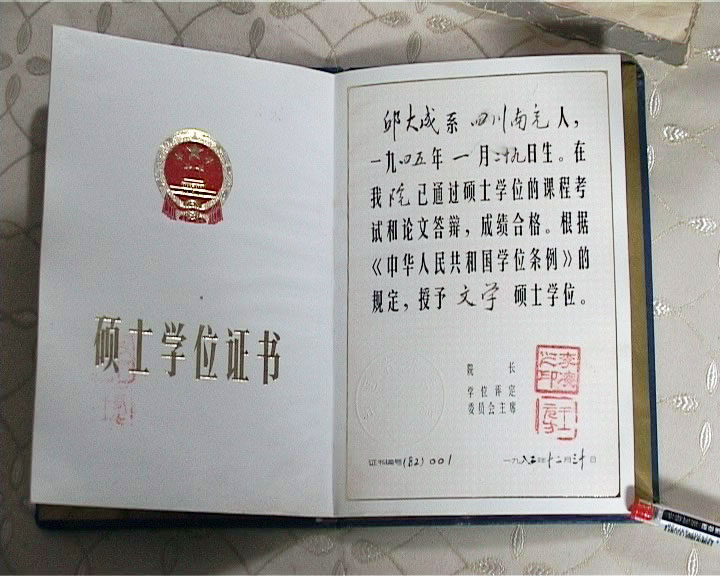 硕士学位证书
邱大成系四川南充人，
一九四五年一月二十九日生。在
我院已通过硕士学位的课程考
试和论文答辩，成绩合格。根据
《中华人民共和国学位条例》的
规定，授予文学硕士学位。
院长
学位评定
委员会主席
证书编号(82)001
一九八二年十二月三十日